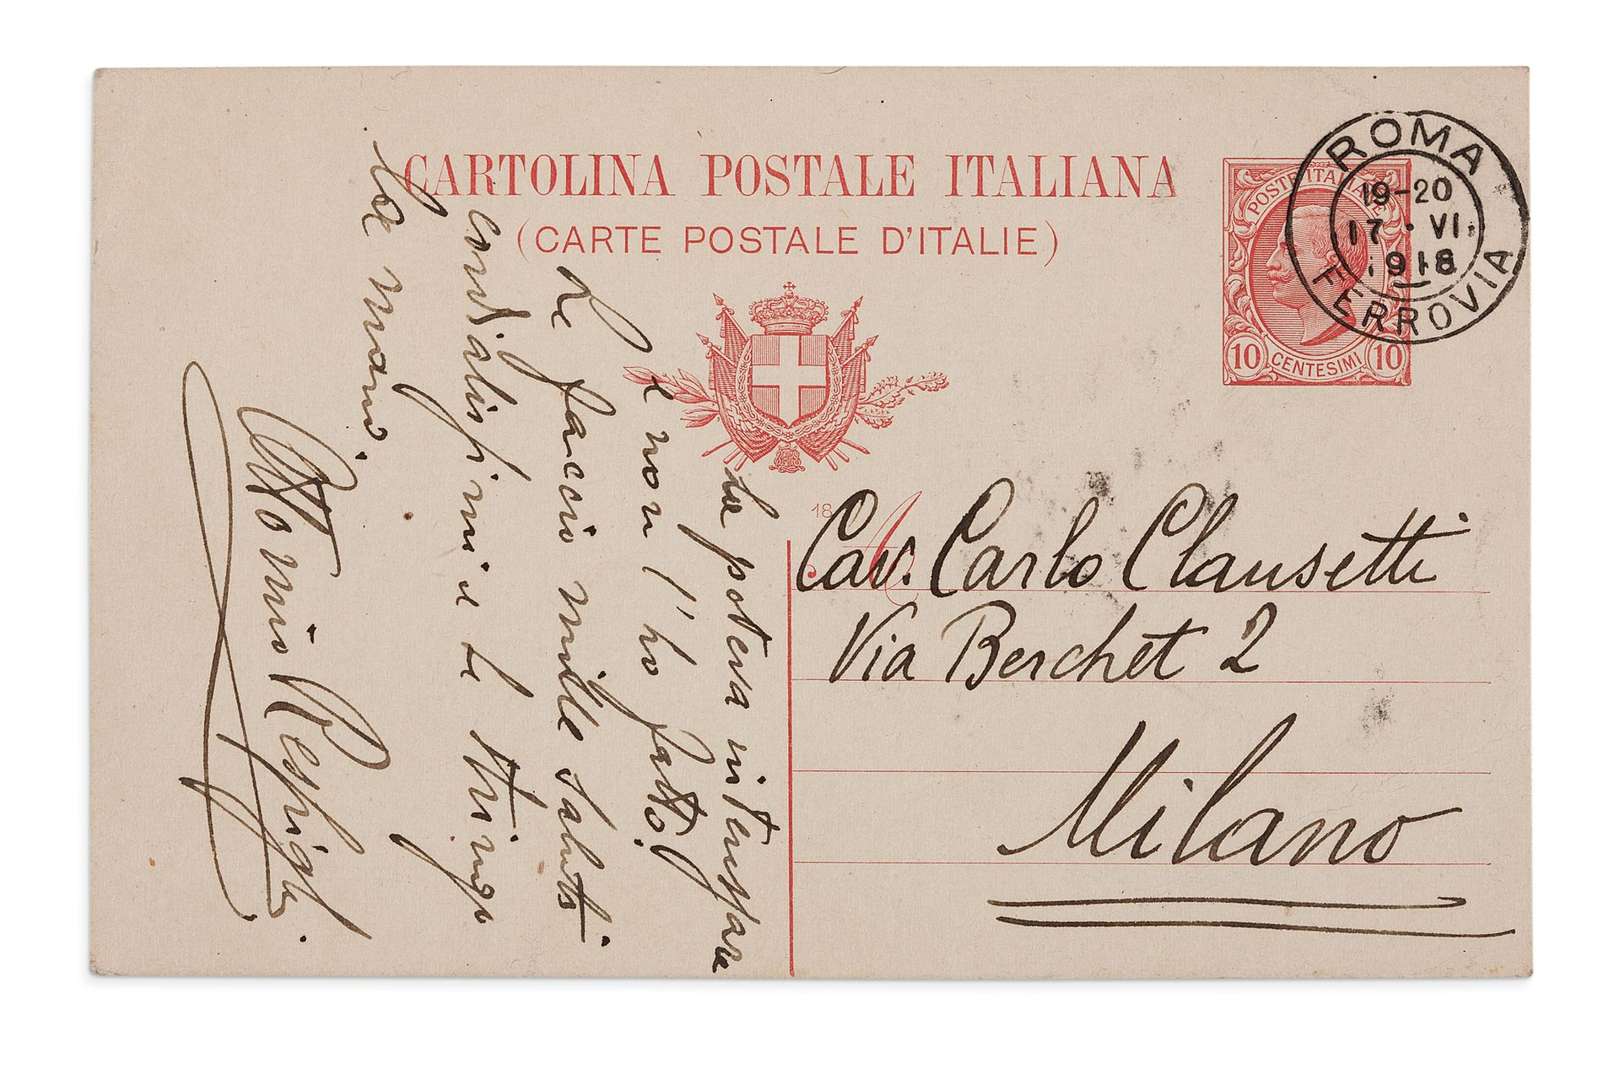 CARTOLINA POSTALE ITALIANA
(CARTE POSTALE D'ITALIE)
POSTE ITALIANE
10 CENTESIMI 10
ROMA
19-20
17·VI·
1918
FERROVIA
18
Cav. Carlo Clausetti
Via Berchet 2
Milano
La poteva interessare
e non l'ho fatto!
Le faccio mille saluti
cordialissimi e Le stringo
la mano.
Ottorino Respighi.